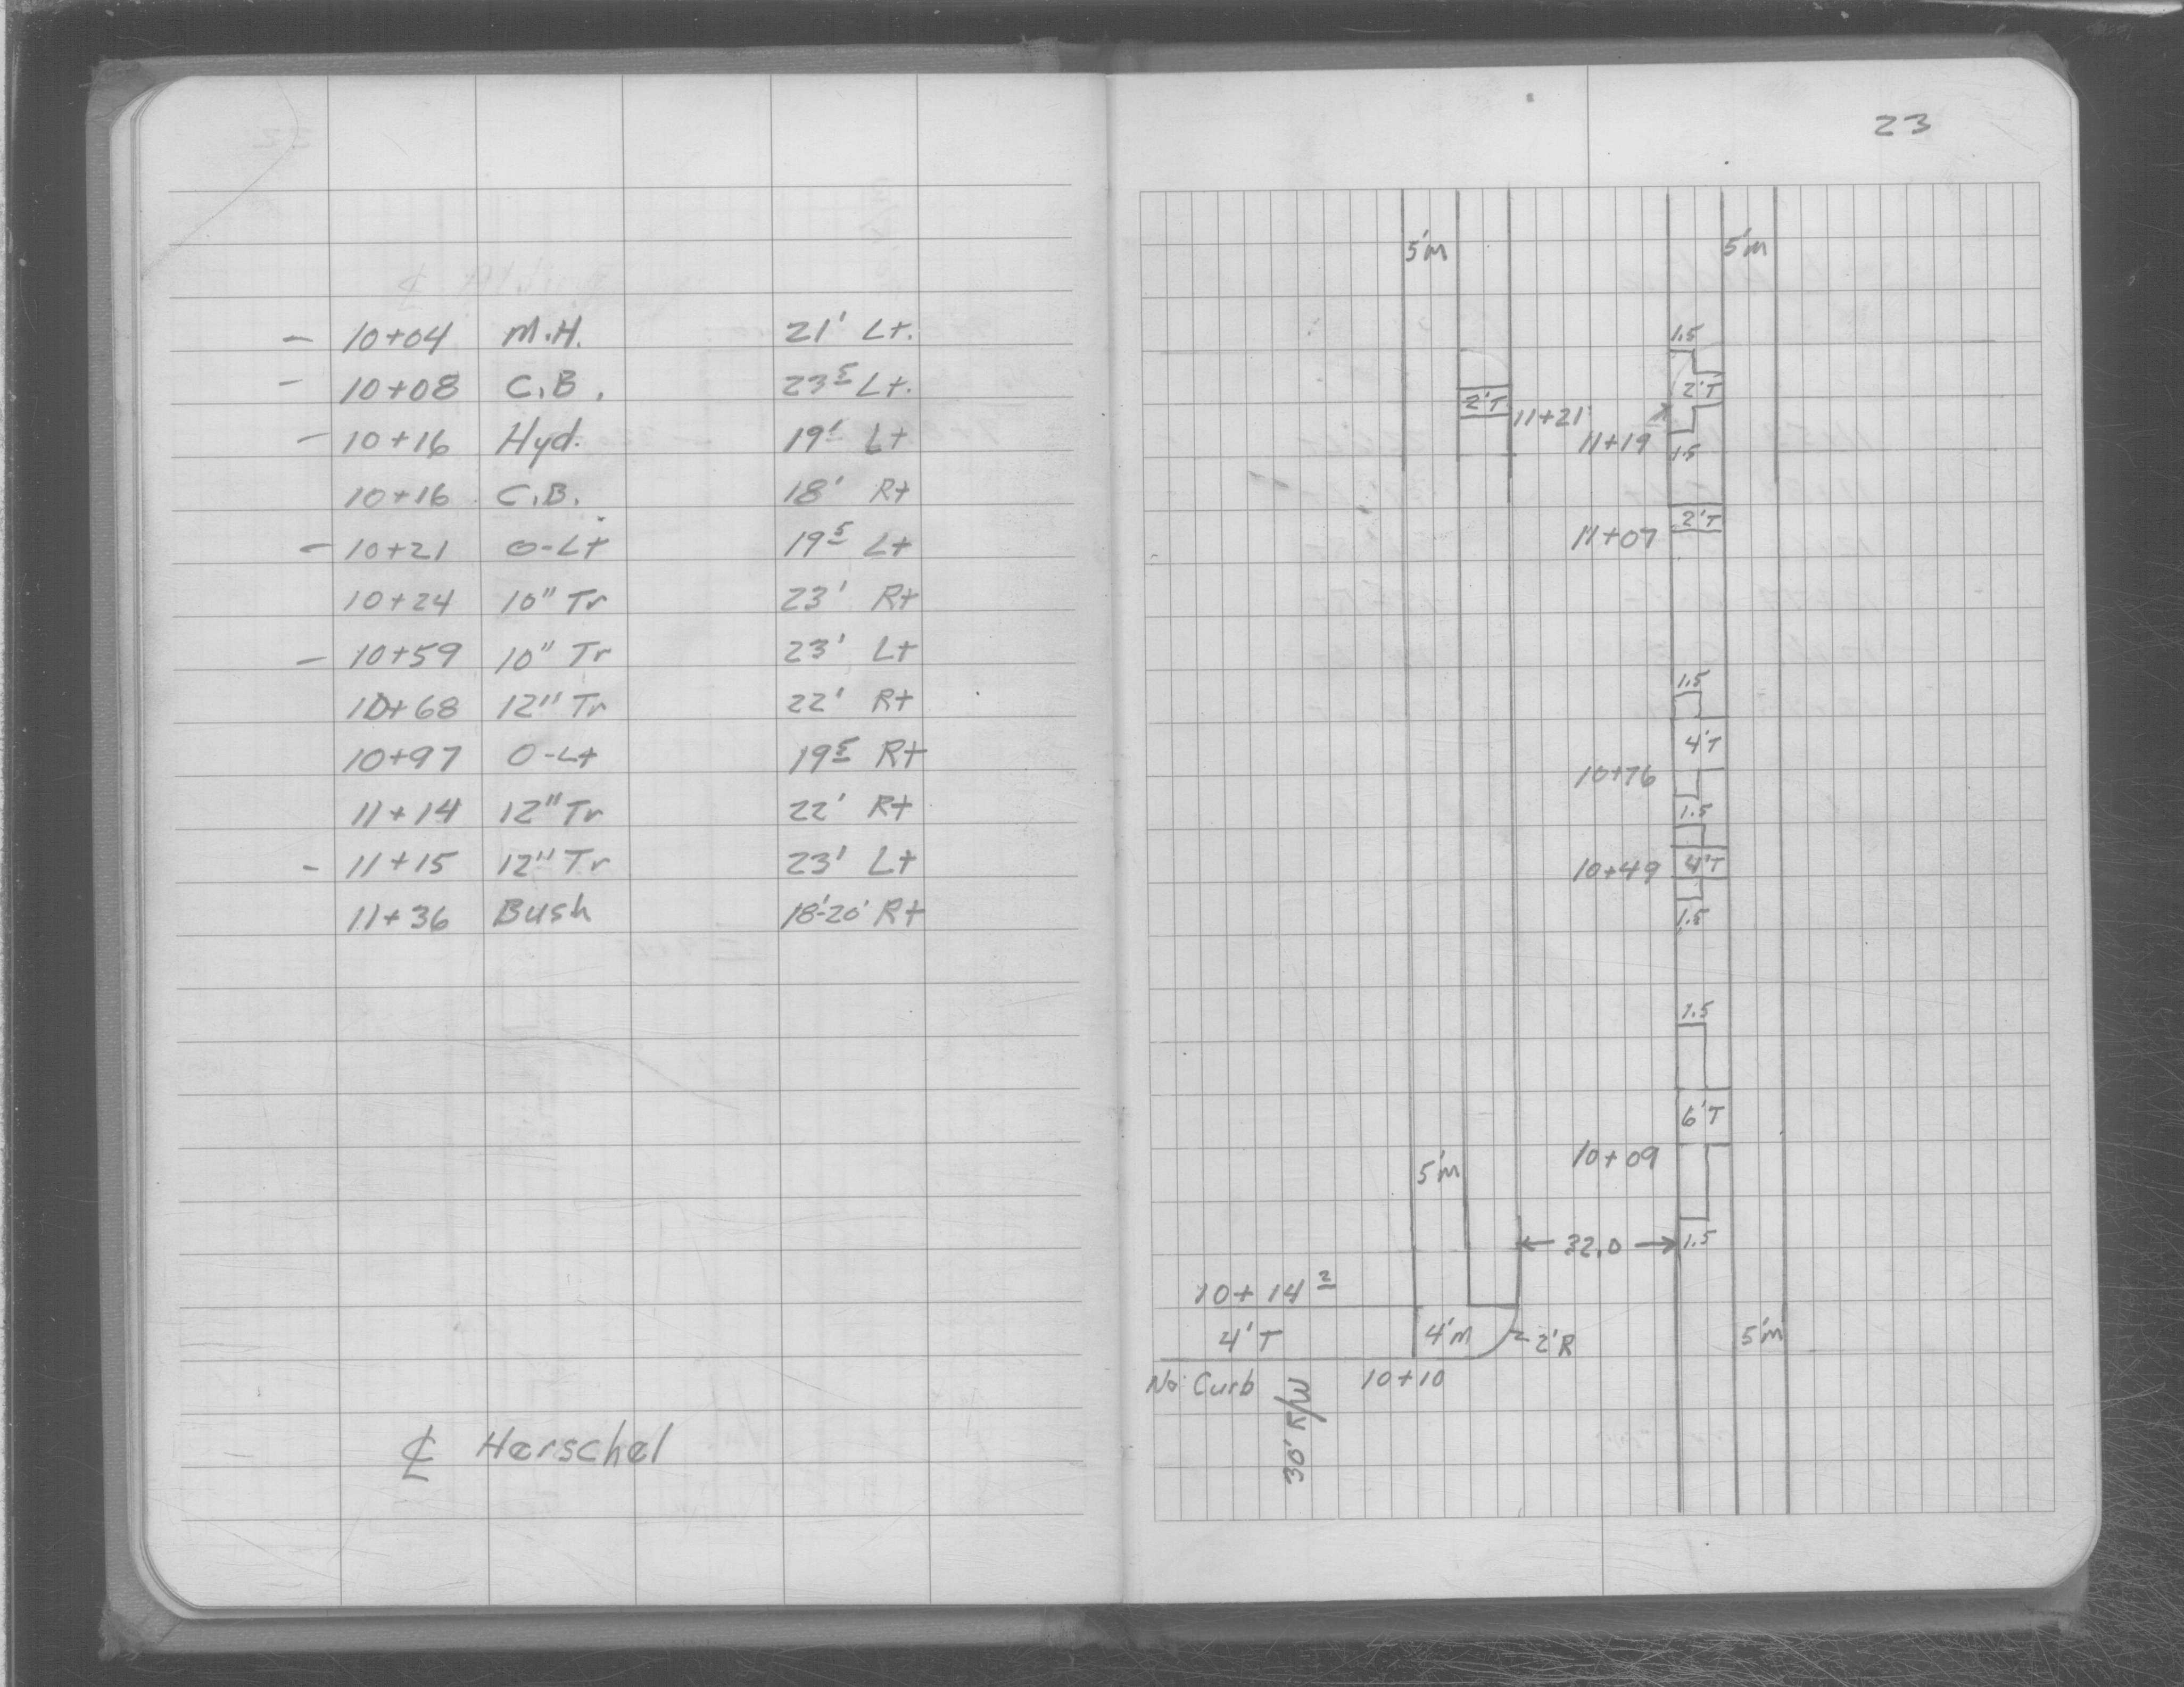 - 10+04 M.H. 21' Lt.
- 10+08 C.B. 23⁵ Lt.
- 10+16 Hyd. 19' Lt
10+16 C.B. 18' Rt
- 10+21 O-Lt 19⁵ Lt
10+24 10" Tr 23' Rt
- 10+59 10" Tr 23' Lt
10+68 12" Tr 22' Rt
10+97 O-Lt 19⁵ Rt
11+14 12" Tr 22' Rt
- 11+15 12" Tr 23' Lt
11+36 Bush 18'-20' Rt
℄ Herschel
23
5'M 5'M
1.5
2'T
2'T 11+21
11+19 1.5
11+07 2'T
1.5
4'T
10+76
1.5
10+49 4'T
1.5
1.5
6'T
10+09
5'M
32.0 1.5
10+14²
4'T 4'M 2'R 5'M
No Curb 10+10
30' R/W